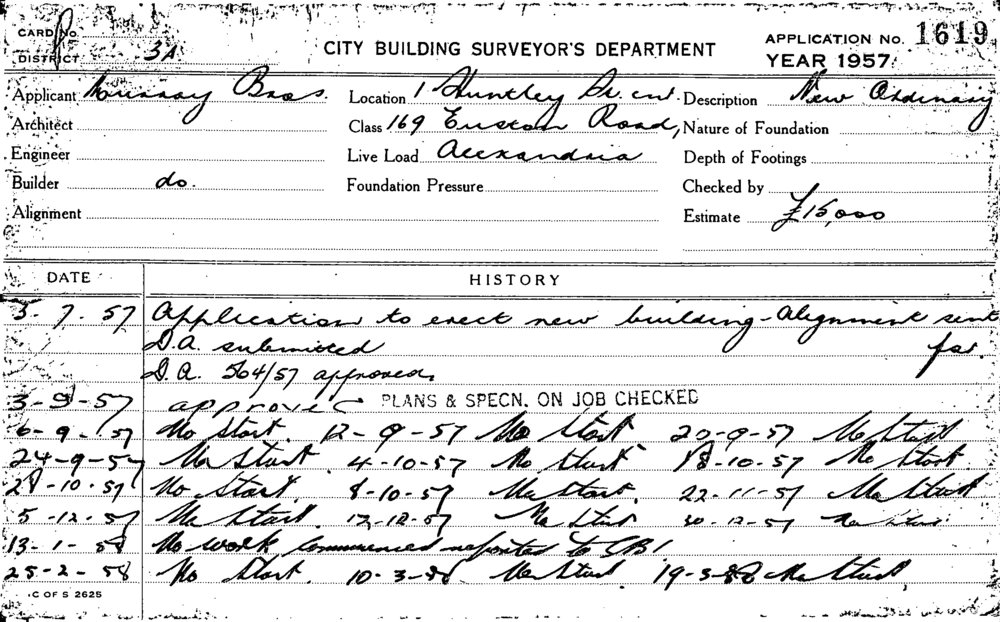 CARD No.
DISTRICT 3A
CITY BUILDING SURVEYOR'S DEPARTMENT
APPLICATION No. 1619
YEAR 1957
Applicant Murray Bros. Location 1 Huntley St. cnr. Description New Ordinary
Architect Class 169 Euston Road, Nature of Foundation
Engineer Live Load Alexandria Depth of Footings
Builder do. Foundation Pressure Checked by
Alignment Estimate £15,000
DATE HISTORY
3. 7. 57 Application to erect new building - Alignment sent
D.A. submitted for.
D.A. 504/57 approved.
3-9-57 approved PLANS & SPECN. ON JOB CHECKED
6-9-57 No Start. 12-9-57 No Start 20-9-57 No Start
24-9-57 No Start. 4-10-57 No Start 18-10-57 No Start.
28-10-57 No Start. 8-10-57 No Start. 22-11-57 No Start
5-12-57 No Start. 17-12-57 No Start 30-12-57 No Start
13-1-58 No work commenced reported to CBI
25-2-58 No Start. 10-3-58 No Start. 19-3-58 No Start.
C OF S 2625